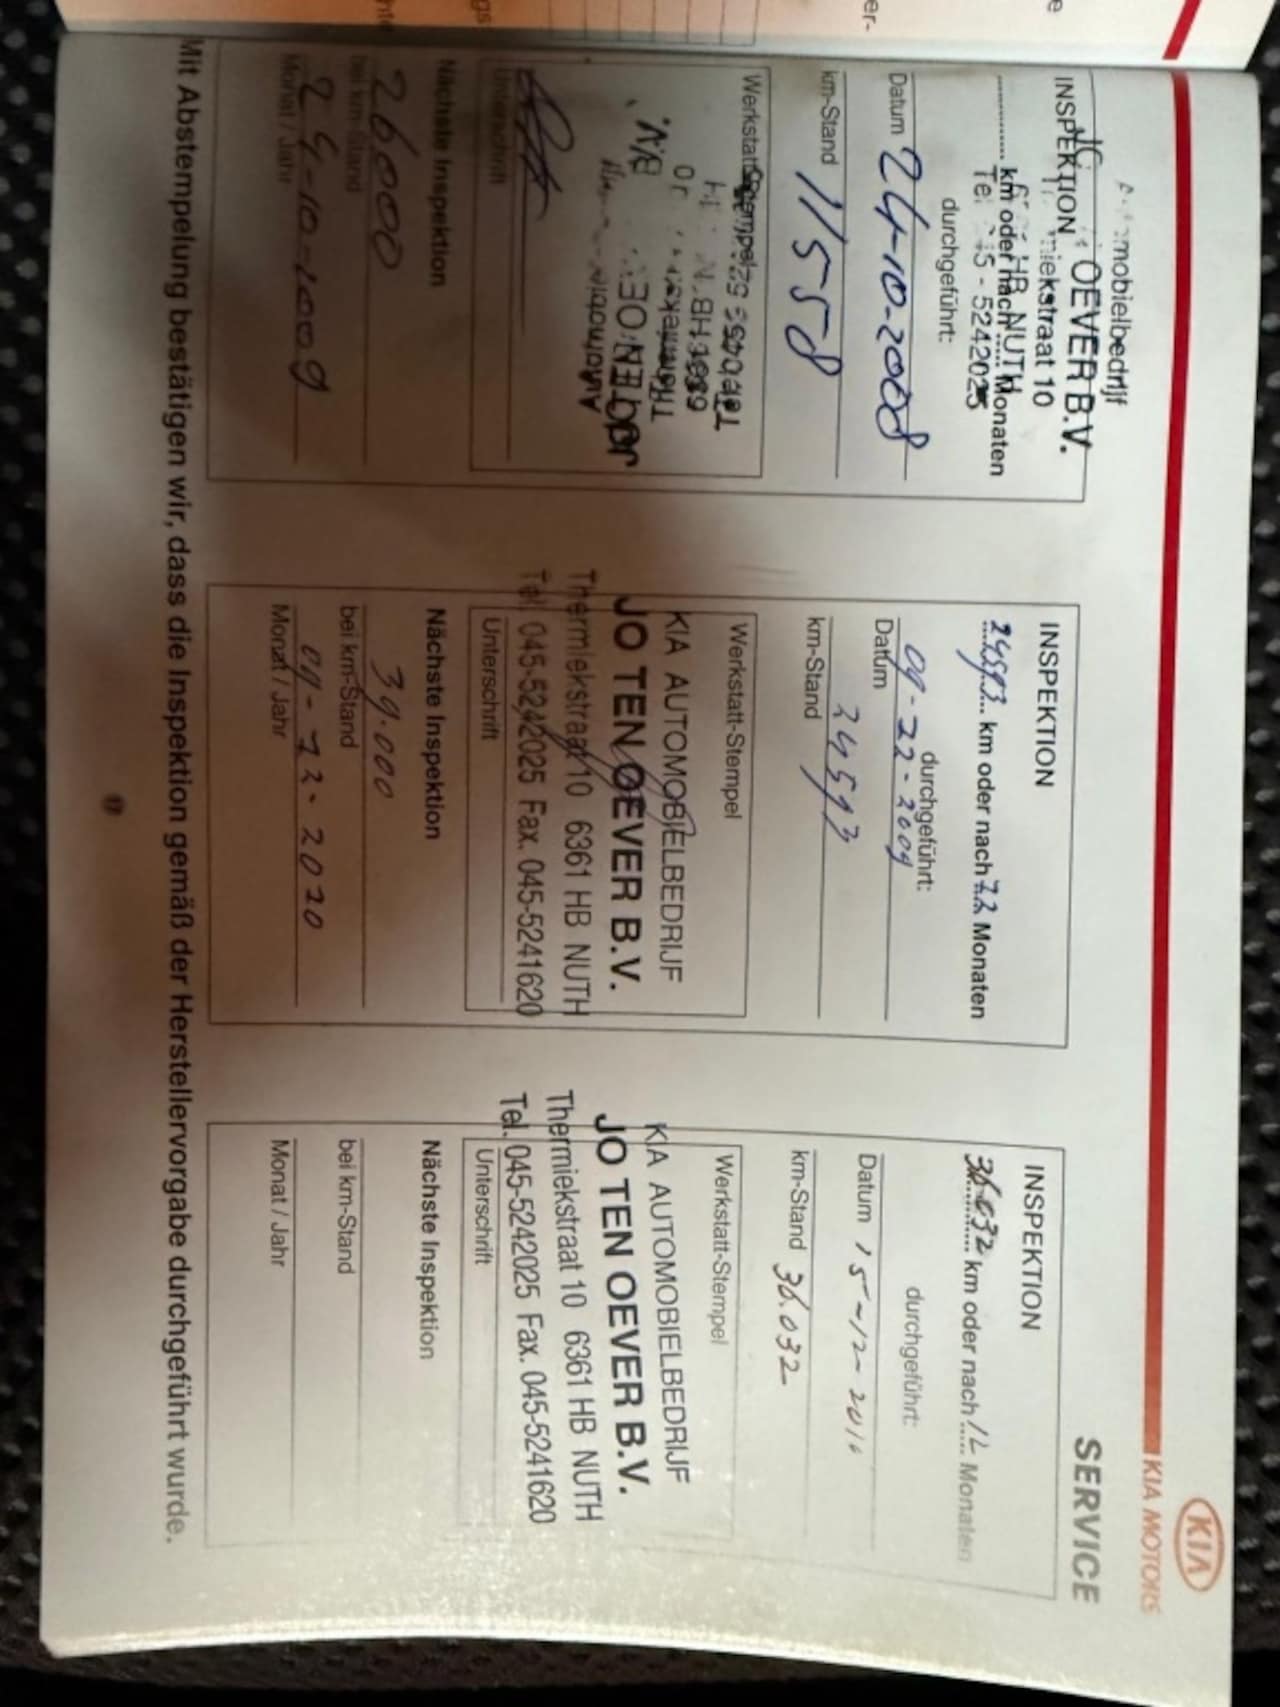 KIA
KIA MOTORS
SERVICE
Automobielbedrijf
JO TEN OEVER B.V.
Thermiekstraat 10
6361 HB NUTH
Tel. 045 - 5242025
INSPEKTION
km oder nach ...... Monaten
durchgeführt:
Datum 24-10-2008
km-Stand 11558
Werkstatt-Stempel
Unterschrift
Nächste Inspektion
26000
bei km-Stand
24-10-2009
Monat / Jahr
INSPEKTION
24593 km oder nach 12 Monaten
durchgeführt:
09-12-2009
Datum
24593
km-Stand
Werkstatt-Stempel
KIA AUTOMOBIELBEDRIJF
JO TEN OEVER B.V.
Thermiekstraat 10 6361 HB NUTH
Tel. 045-5242025 Fax. 045-5241620
Unterschrift
Nächste Inspektion
39.000
bei km-Stand
09-12-2010
Monat / Jahr
INSPEKTION
36032 km oder nach 12 Monaten
durchgeführt:
Datum 15-12-2010
km-Stand 36.032
Werkstatt-Stempel
KIA AUTOMOBIELBEDRIJF
JO TEN OEVER B.V.
Thermiekstraat 10 6361 HB NUTH
Tel. 045-5242025 Fax. 045-5241620
Unterschrift
Nächste Inspektion
bei km-Stand
Monat / Jahr
Mit Abstempelung bestätigen wir, dass die Inspektion gemäß der Herstellervorgabe durchgeführt wurde.
17